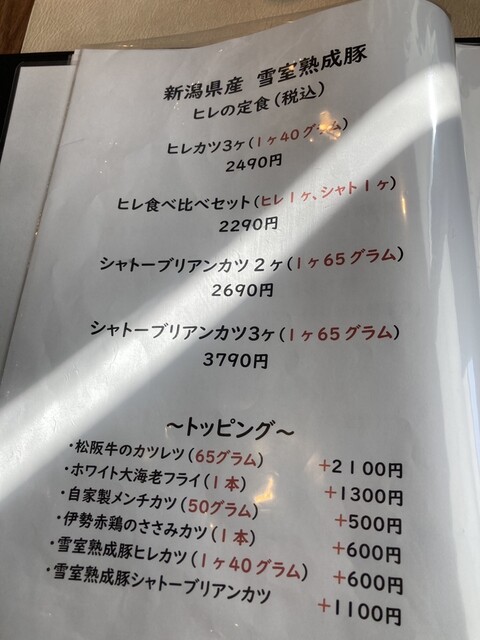 新潟県産 雪室熟成豚
ヒレの定食(税込)
ヒレカツ3ヶ(1ヶ40グラム)
2490円
ヒレ食べ比べセット(ヒレ1ヶ、シャト1ヶ)
2290円
シャトーブリアンカツ2ヶ(1ヶ65グラム)
2690円
シャトーブリアンカツ3ヶ(1ヶ65グラム)
3790円
〜トッピング〜
・松阪牛のカツレツ(65グラム) +2100円
・ホワイト大海老フライ(1本) +1300円
・自家製メンチカツ(50グラム) +500円
・伊勢赤鶏のささみカツ(1本) +600円
・雪室熟成豚ヒレカツ(1ヶ40グラム) +600円
・雪室熟成豚シャトーブリアンカツ +1100円